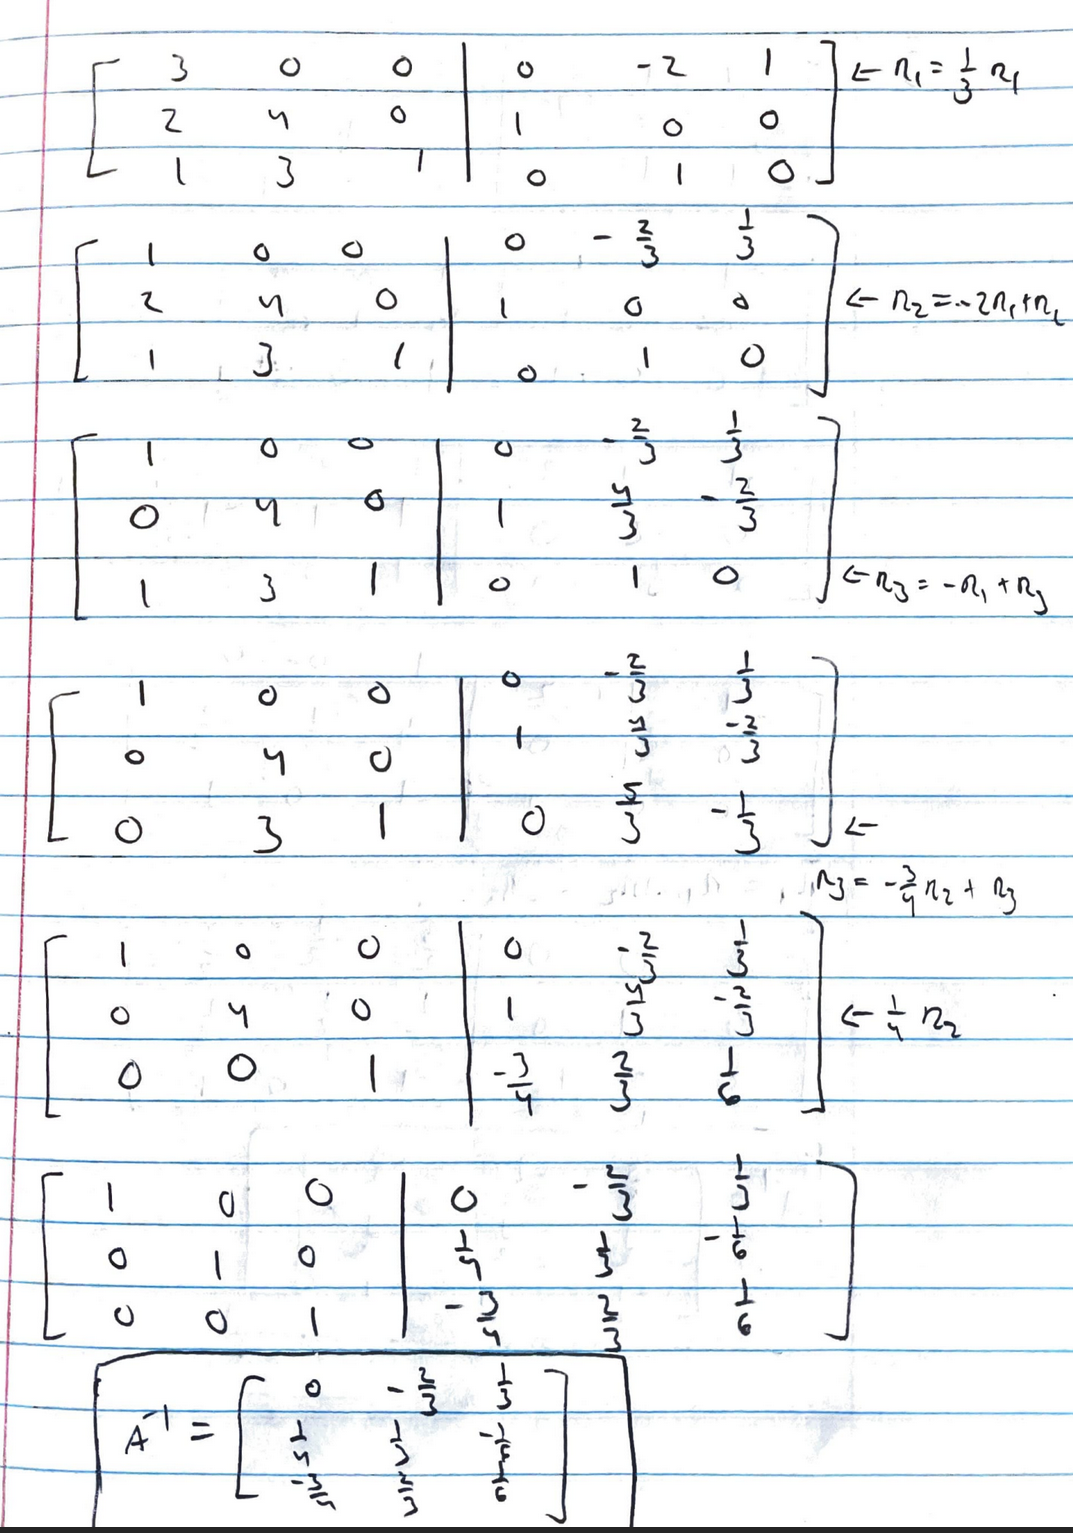 [ 3 0 0 | 0 -2 1 ] ← R₁ = 1/3 R₁
[ 2 4 0 | 1 0 0 ]
[ 1 3 1 | 0 1 0 ]
[ 1 0 0 | 0 -2/3 1/3 ]
[ 2 4 0 | 1 0 0 ] ← R₂ = -2R₁+R₂
[ 1 3 1 | 0 1 0 ]
[ 1 0 0 | 0 -2/3 1/3 ]
[ 0 4 0 | 1 4/3 -2/3 ]
[ 1 3 1 | 0 1 0 ] ← R₃ = -R₁ + R₃
[ 1 0 0 | 0 -2/3 1/3 ]
[ 0 4 0 | 1 4/3 -2/3 ]
[ 0 3 1 | 0 5/3 -1/3 ] ←
R₃ = -3/4 R₂ + R₃
[ 1 0 0 | 0 -2/3 1/3 ]
[ 0 4 0 | 1 4/3 -2/3 ] ← 1/4 R₂
[ 0 0 1 | -3/4 2/3 1/6 ]
[ 1 0 0 | 0 -2/3 1/3 ]
[ 0 1 0 | 1/4 1/3 -1/6 ]
[ 0 0 1 | -3/4 2/3 1/6 ]
[ 0 -2/3 1/3 ]
A⁻¹ = [ 1/4 1/3 -1/6 ]
[ -3/4 2/3 1/6 ]